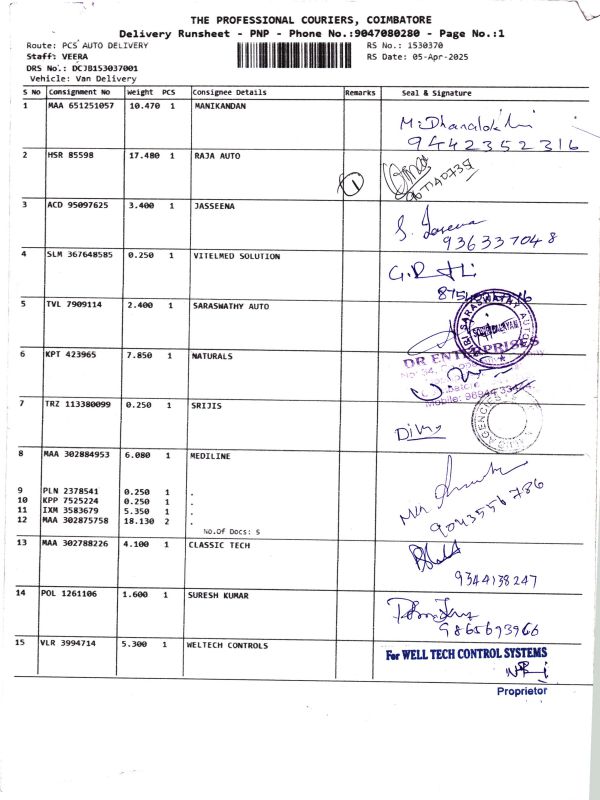 THE PROFESSIONAL COURIERS, COIMBATORE
Delivery Runsheet - PNP - Phone No.:9047080280 - Page No.:1
Route: PCS AUTO DELIVERY RS No.: 1530370
Staff: VEERA RS Date: 05-Apr-2025
DRS No.: DCJB153037001
Vehicle: Van Delivery
S No Consignment No Weight PCS Consignee Details Remarks Seal & Signature
1 MAA 651251057 10.470 1 MANIKANDAN
9442352316
2 HSR 85598 17.480 1 RAJA AUTO
1
3 ACD 95097625 3.400 1 JASSEENA
S. Jaseena
936337048
4 SLM 367648585 0.250 1 VITELMED SOLUTION
5 TVL 7909114 2.400 1 SARASWATHY AUTO
SRI SARASWATHY AUTOS
6 KPT 423965 7.850 1 NATURALS
DR ENTERPRISES
7 TRZ 113380099 0.250 1 SRIJIS
8 MAA 302884953 6.080 1 MEDILINE
9 PLN 2378541 0.250 1 .
10 KPP 7525224 0.250 1 .
11 IXM 3583679 5.350 1 .
12 MAA 302875758 18.130 2 .
No.Of Docs: 5
9043556786
13 MAA 302788226 4.100 1 CLASSIC TECH
9344138247
14 POL 1261106 1.600 1 SURESH KUMAR
9865693966
15 VLR 3994714 5.300 1 WELTECH CONTROLS
For WELL TECH CONTROL SYSTEMS
Proprietor